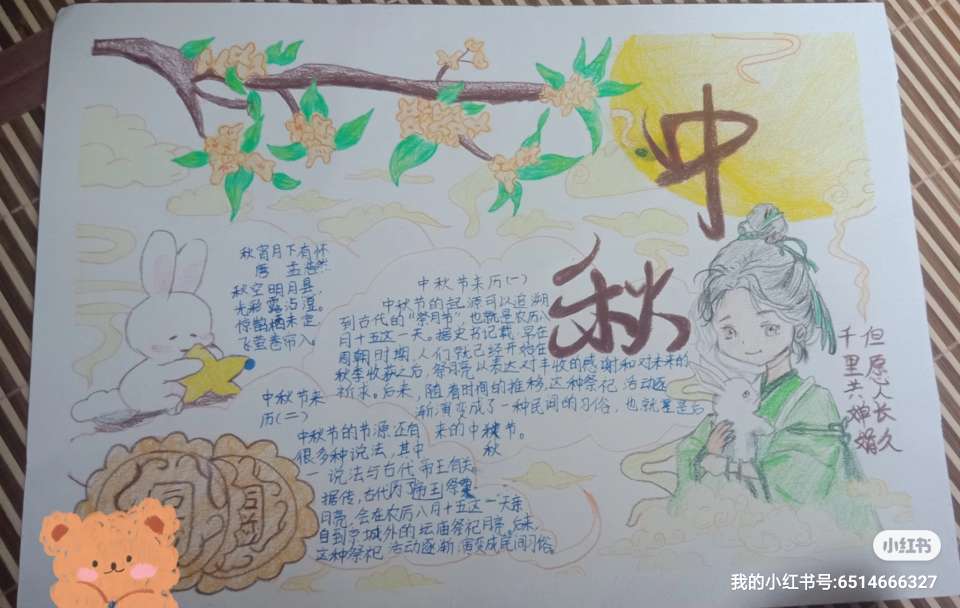 中
秋
秋宵月下有怀
唐 孟浩然
秋空明月悬，
光彩露沾湿。
惊鹊栖未定，
飞萤卷帘入。
中秋节来历(一)
中秋节的起源可以追溯
到古代的“祭月节”也就是农历八
月十五这一天。据史书记载，早在
周朝时期，人们就已经开始在
秋季收获之后，祭月亮以表达对丰收的感谢和对未来的
祈求。后来，随着时间的推移，这种祭祀 活动逐
渐演变成了一种民间的习俗，也就是是后
来的中秋节。
秋
中秋节来
历(二)
中秋节的节源还有
很多种说法，其中
一说法与古代帝王有关
据传，古代历 帝王祭
月亮，会在农历八月十五这一天亲
自到京城外的坛庙祭祀月亮。后来，
这种祭祀 活动逐渐演变成民间习俗
但愿人长久
千里共婵娟
小红书
我的小红书号:6514666327